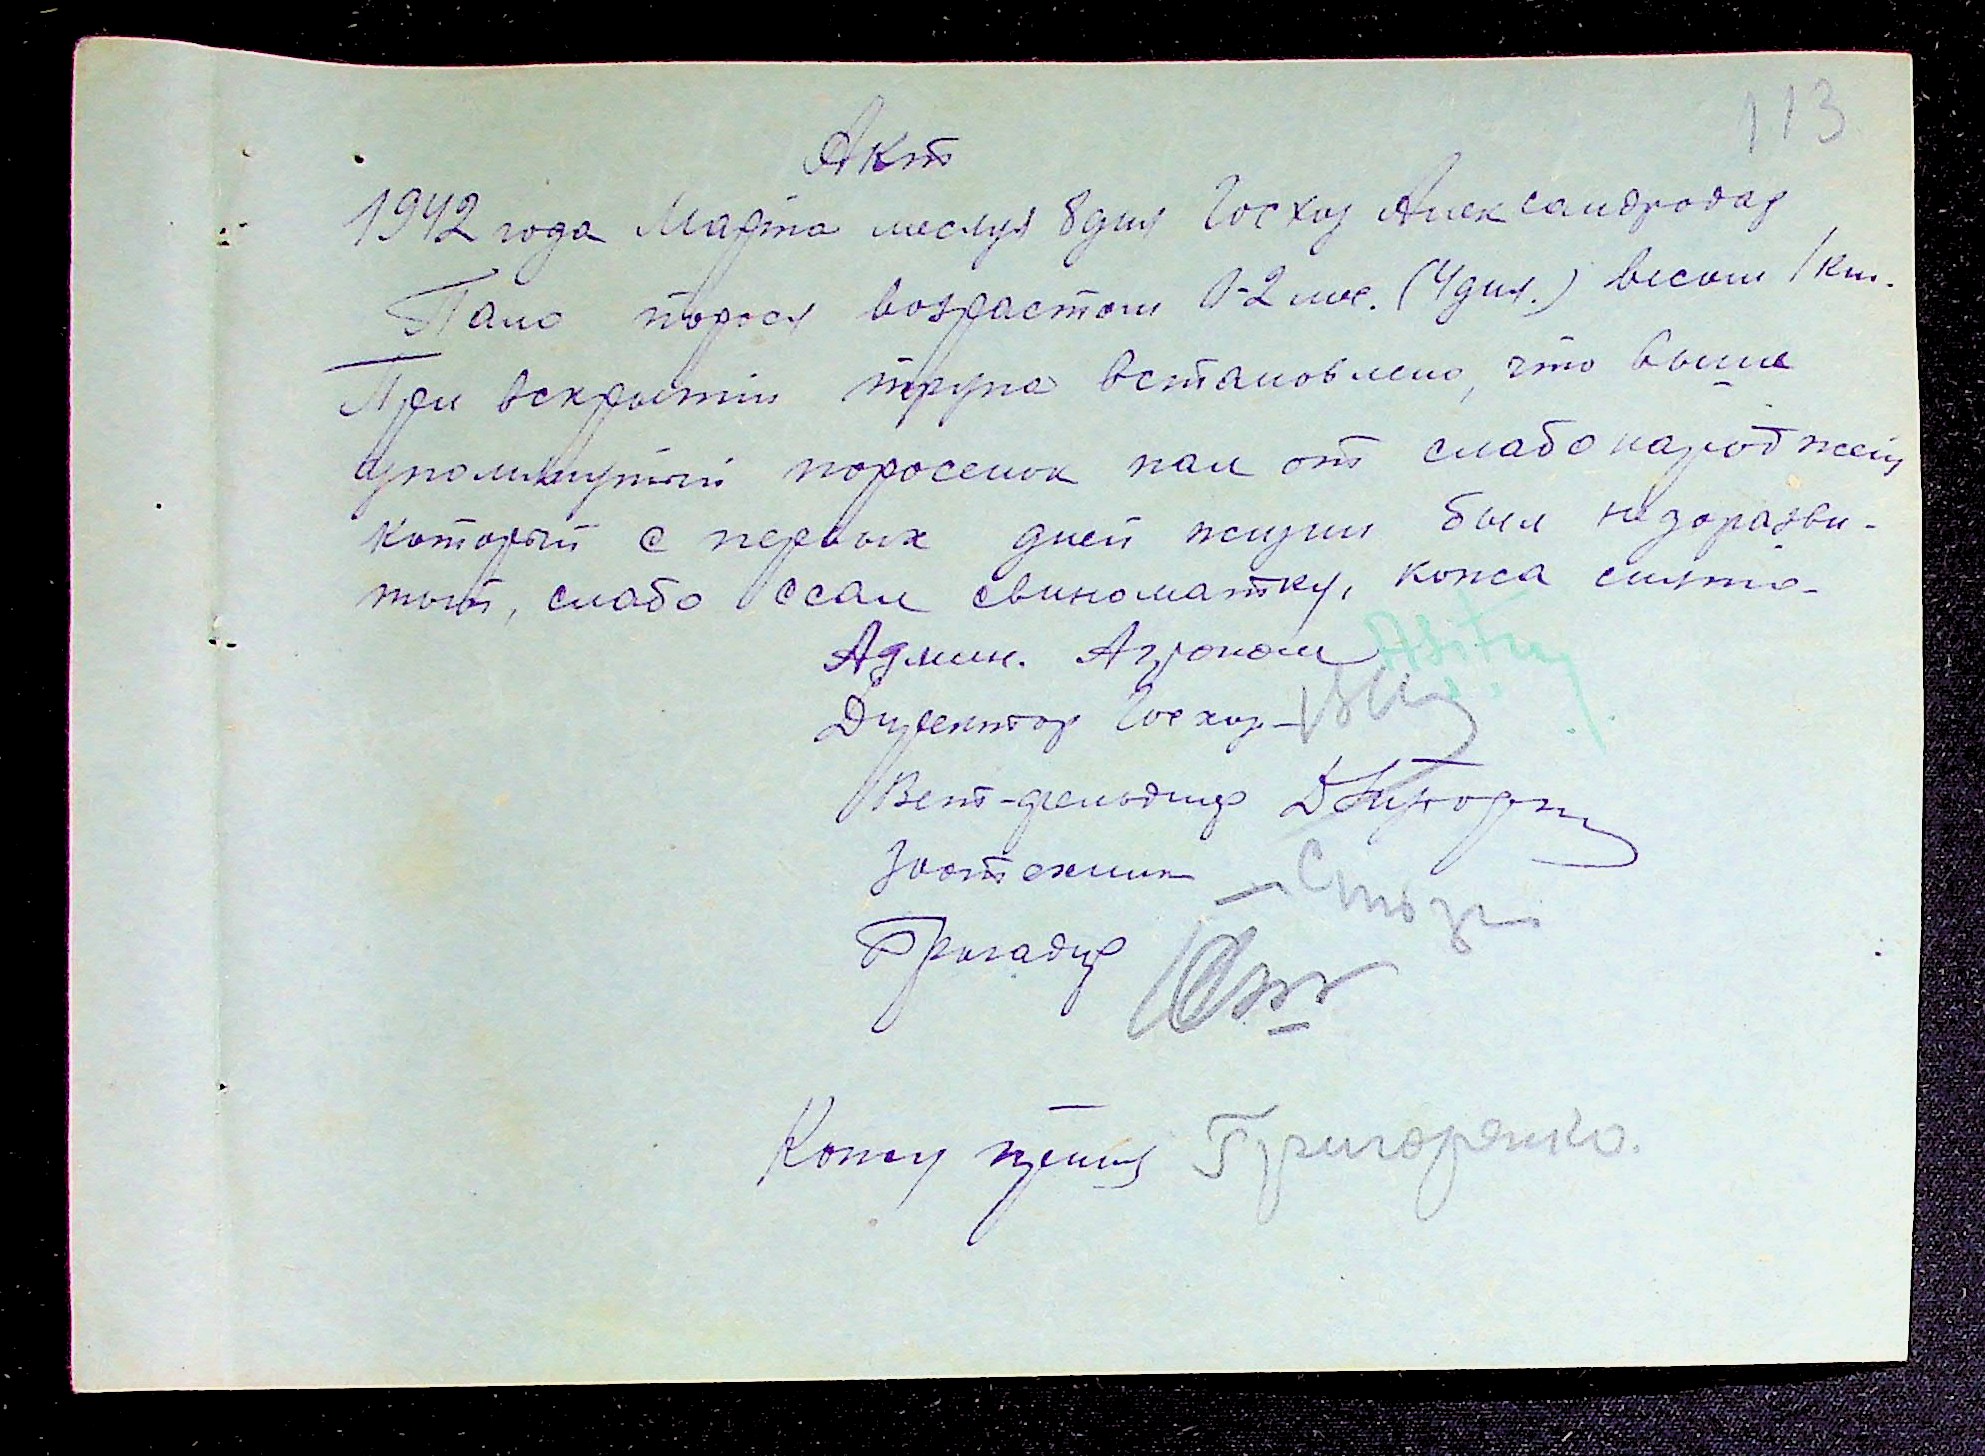 113
Акт
1942 года Марта месяця 8 дня Госхоз Александродар
Пало порося возрастом 0-2 мес. (4 дня.) весом 1 кил.
При вскрытии трупа встановлено, что выше
упомянутый поросенок пал от слабонароджен
который с первых дней жизни был недоразви-
тый, слабо ссал свиноматку, кожа снята-
Админ. Агроном
Директор Госхоз-
Вет-фельдшер
Зоотехник
Бригадир
Кожу принял Григоренко.